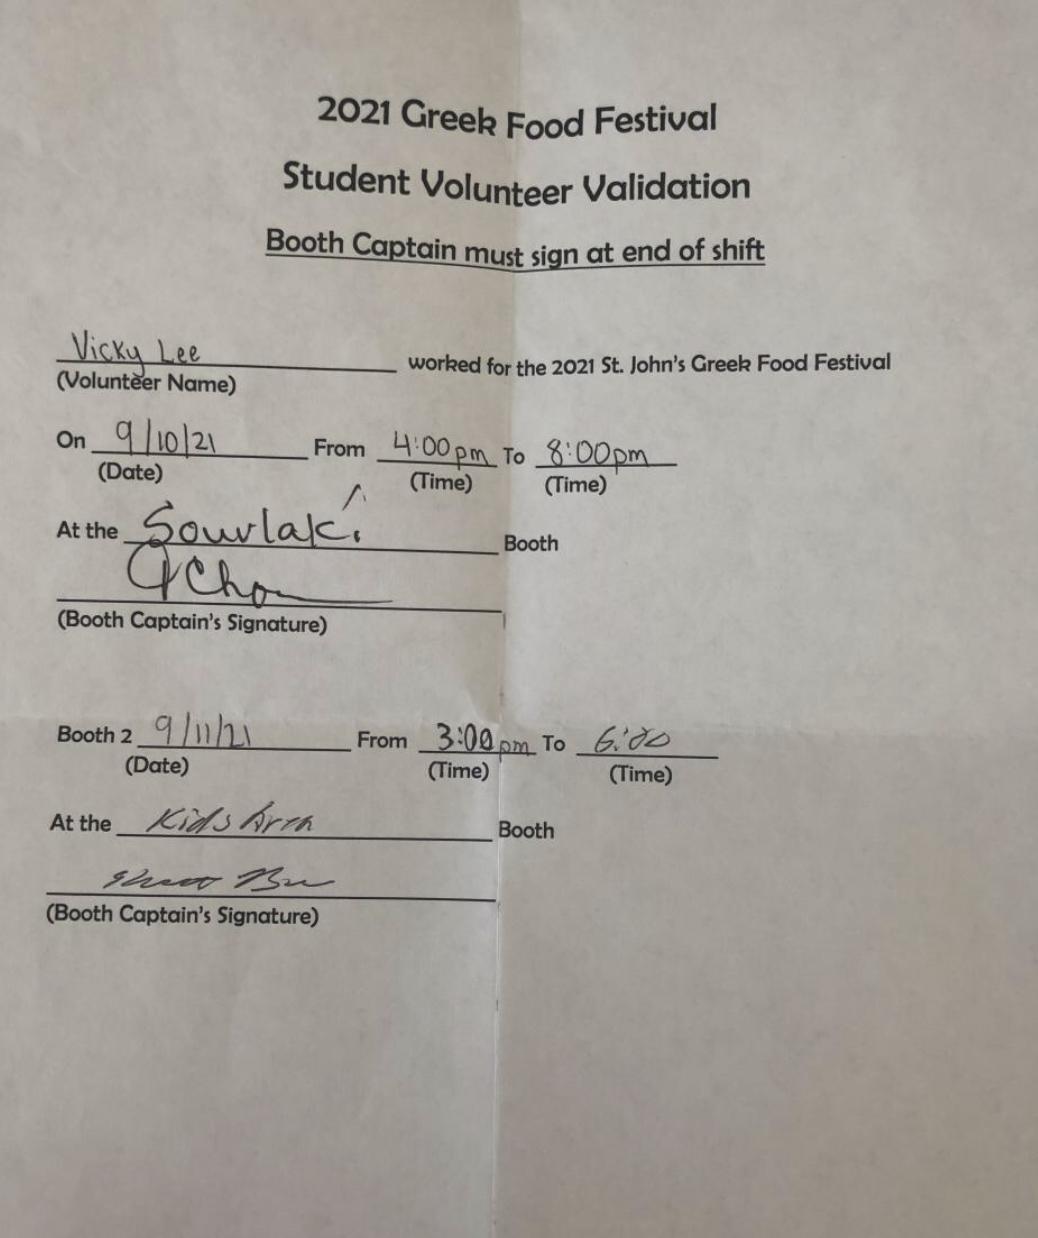 2021 Greek Food Festival
Student Volunteer Validation
Booth Captain must sign at end of shift
Vicky Lee worked for the 2021 St. John's Greek Food Festival
(Volunteer Name)
On 9/10/21 From 4:00pm To 8:00pm
(Date) (Time) (Time)
At the Souvlaki Booth
(Booth Captain's Signature)
Booth 2 9/11/21 From 3:00pm To 6:00
(Date) (Time) (Time)
At the Kids Booth
(Booth Captain's Signature)